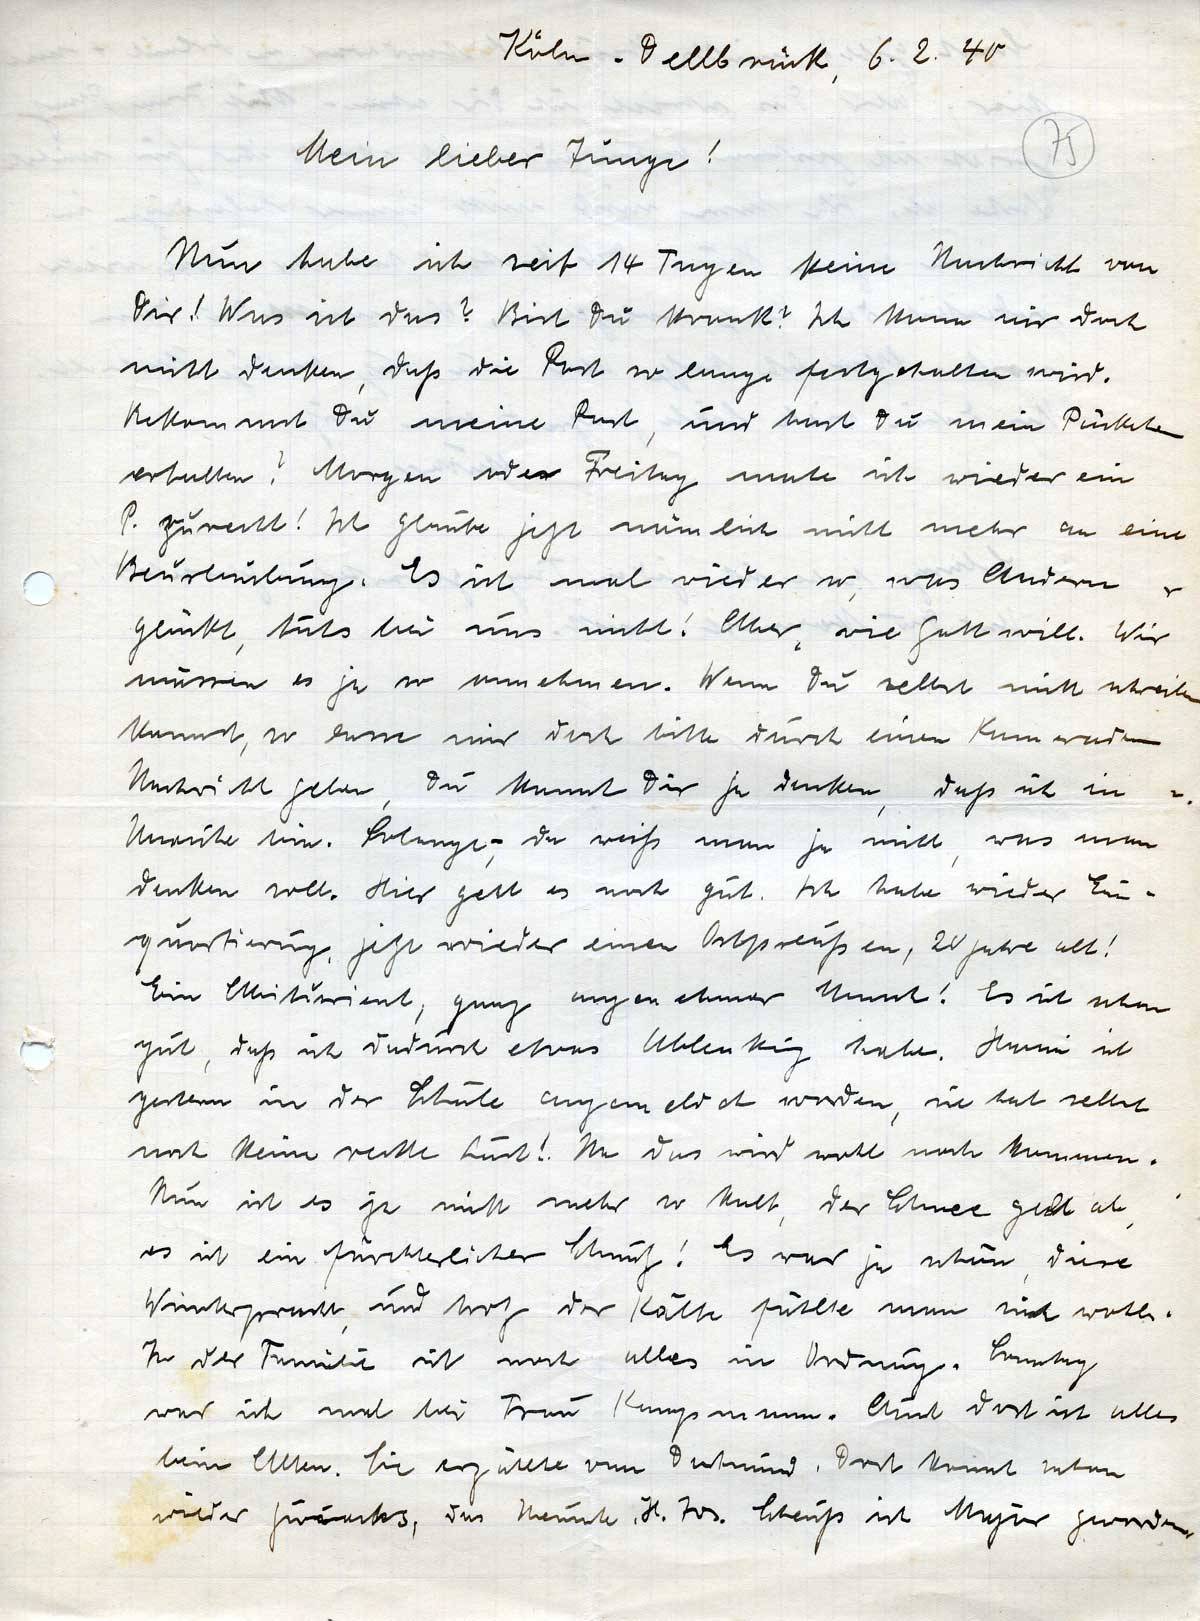 Köln-Dellbrück, 6.2.40
75
Mein lieber Junge!
Nun habe ich seit 14 Tagen keine Nachricht von
Dir! Was ist das? Bist Du krank? Ich kann mir doch
nicht denken, daß die Post so lange festgehalten wird.
Bekommst Du meine Post, und hast Du mein Päckchen
erhalten? Morgen oder Freitag mache ich wieder ein
P. zurecht! Ich glaube jetzt nämlich nicht mehr an eine
Beurlaubung. Es ist mal wieder so, was Andern
glückt, tuts bei uns nicht! Aber, wie Gott will. Wir
müssen es ja so annehmen. Wenn Du selbst nicht schreiben
kannst, so lasse mir doch bitte durch einen Kameraden
Nachricht geben, Du kannst Dir ja denken, daß ich in
Unruhe bin. Solange, da weiß man ja nicht, was man
denken soll. Hier geht es noch gut. Ich habe wieder Ein-
quartierung, jetzt wieder einen Ostpreußen, 20 Jahre alt!
Ein Abiturient, ganz angenehmer Mensch! Es ist schon
gut, daß ich dadurch etwas Ablenkung habe. Hanni ist
gestern in der Schule angemeldet worden, sie hat selbst
noch keine rechte Lust! Na das wird wohl noch kommen.
Nun ist es ja nicht mehr so kalt, der Schnee geht ab,
es ist ein fürchterlicher Schmutz! Es war ja schön, diese
Winterpracht, und trotz der Kälte fühlte man sich wohl.
In der Familie ist noch alles in Ordnung. Sonntag
war ich mal bei Frau Kampsmann. Auch dort ist alles
beim Alten. Sie erzählte von Dortmund. Dort kommt schon
wieder Zuwachs, das Neunte. H. Jos. Scheuß ist Major geworden.